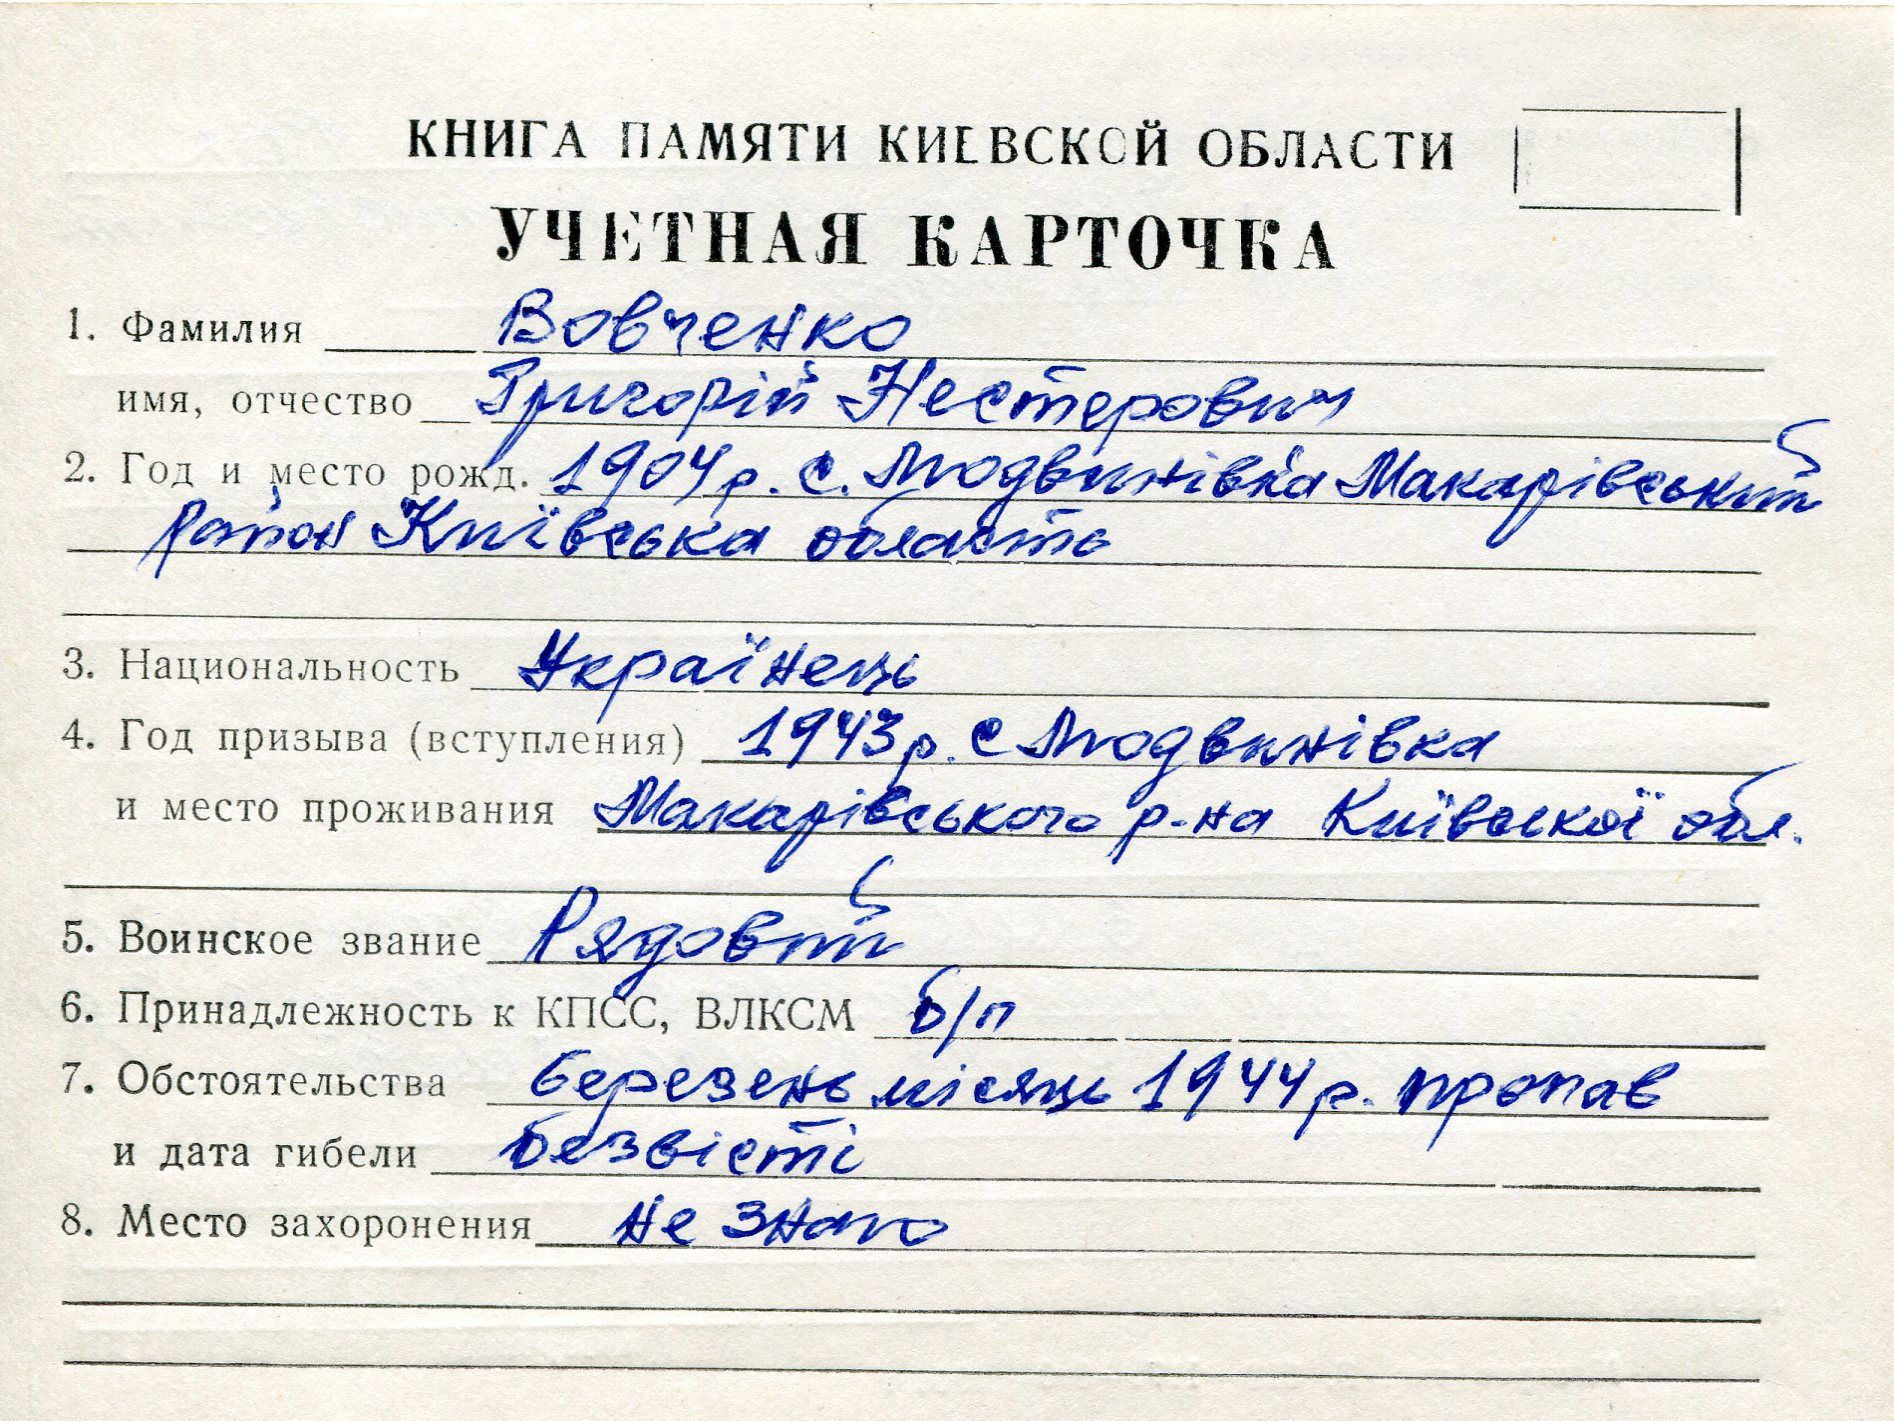 КНИГА ПАМЯТИ КИЕВСКОЙ ОБЛАСТИ
УЧЕТНАЯ КАРТОЧКА
1. Фамилия Вовченко
имя, отчество Григорій Нестерович
2. Год и место рожд. 1904 р. с. Людвинівка Макарівський
район Київська область
3. Национальность Українець
4. Год призыва (вступления) 1943 р. с Людвинівка
и место проживания Макарівського р-на Київської обл.
5. Воинское звание Рядовий
6. Принадлежность к КПСС, ВЛКСМ б/п
7. Обстоятельства березень місяць 1944 р. пропав
и дата гибели безвісті
8. Место захоронения не знаю